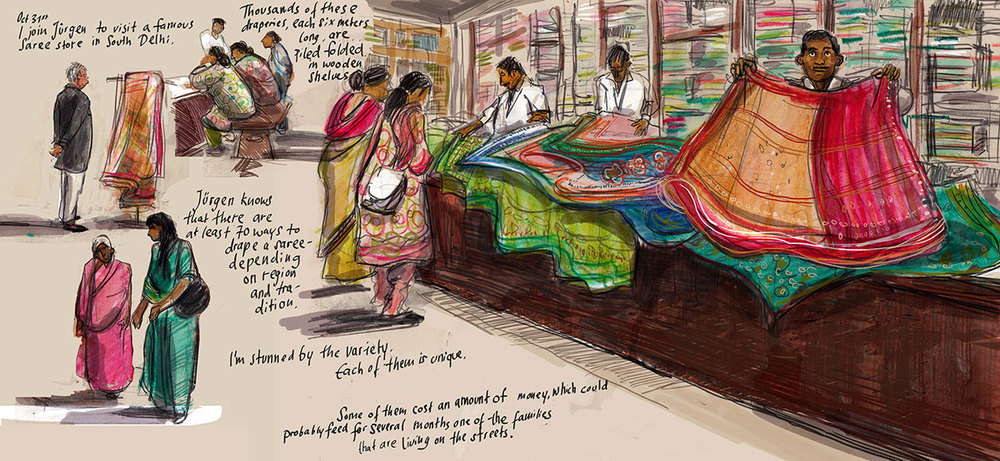 Oct 31st
I join Jürgen to visit a famous
Saree store in South Delhi.
Thousands of these
draperies, each six meters
long, are
piled folded
in wooden
shelves
Jürgen knows
that there are
at least 70 ways to
drape a saree-
depending
on region
and tra-
dition.
I'm stunned by the variety.
Each of them is unique.
Some of them cost an amount of money, which could
probably feed for several months one of the families
that are living on the streets.